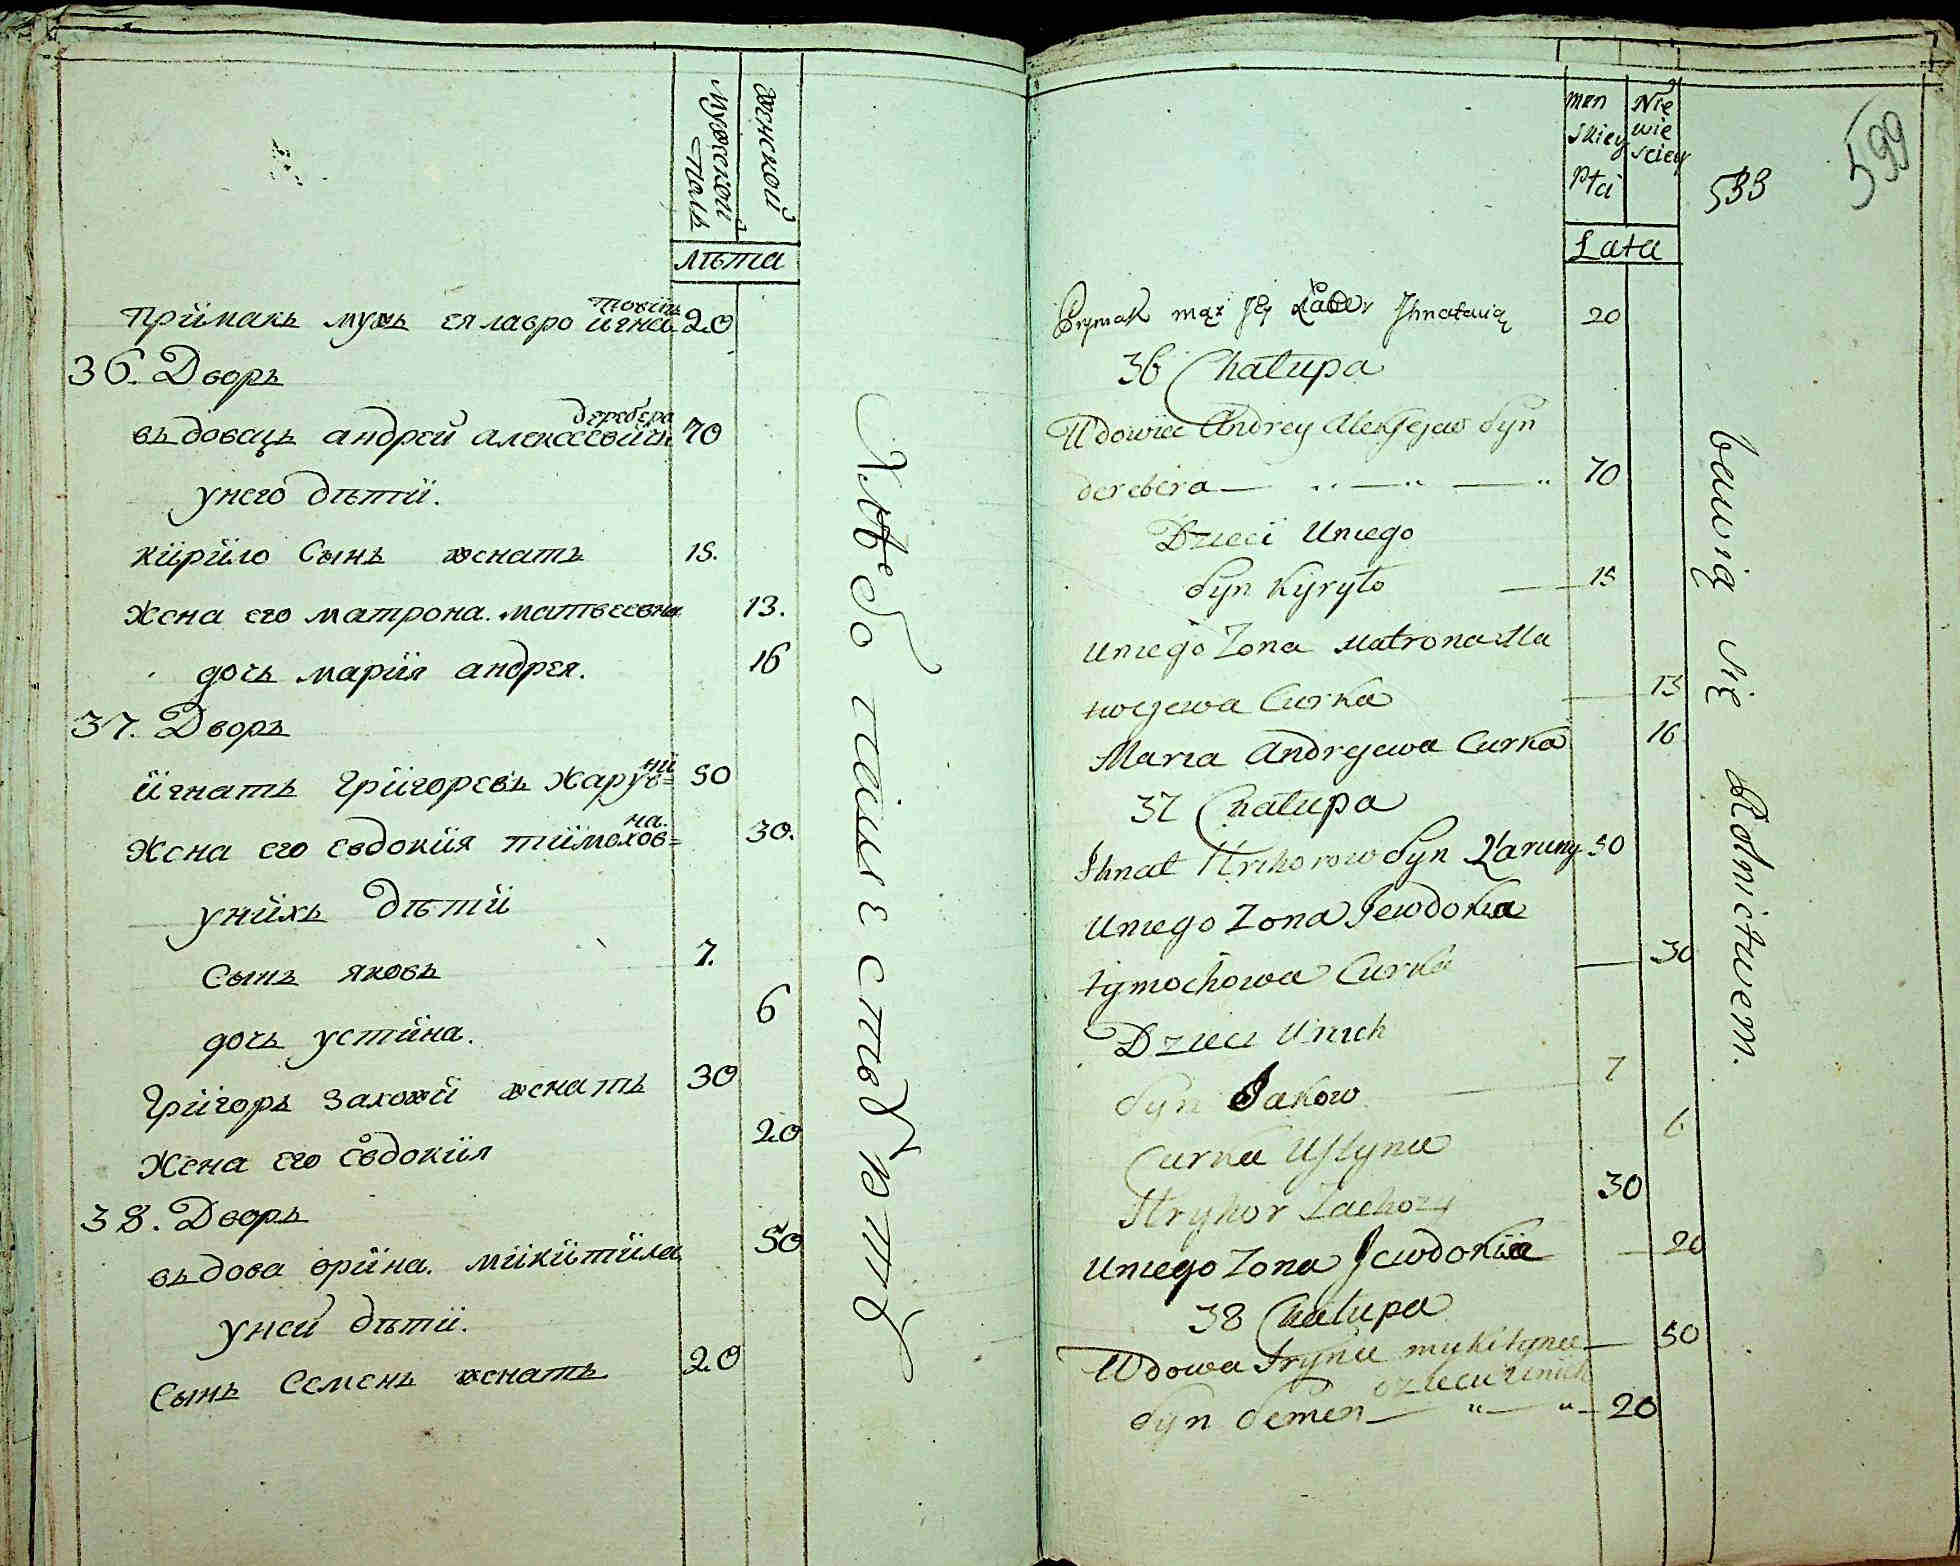 мужской полъ
женской
лѣта
прïимакъ мужъ ея лавро ïигна= товïичъ 20
36. Дворъ
въдовецъ андрей алексеевïич деребера 70
унего дѣтïи.
кïирïило Сынъ женатъ 15.
Жена его матрона. матвеевна 13.
дочь марïия андрея. 16
37. Дворъ
ïигнатъ Грïигоревъ Харув= нïи 50
Жена его евдокïия тïимохов= на. 30.
унïихъ Дѣтïи
Сынъ яковъ 7.
дочь устïина. 6
Грïигоръ Захожïй женатъ 30
Жена его евдокïия 20
38. Дворъ
въдова орïина. мïикïитïина 50
уней дѣтïи.
Сынъ Семенъ женатъ 20
Хлебопашествуютъ
men skiey Płci
Nie wie sciey
533
599
Lata
Prymak mąż Jey Ihnatawią 20
36 Chałupa
Udowiec Andrey Alexjejew Syn
derebera — „ — „ — „ 70
Dzieci Uniego
Syn Kyryło — 15
Uniego Zona Matrona Ma
twejewa Curka — 13
Maria Andrejewa Curka 16
37 Chałupa
Ihnat Hrihorow Syn Xaruny 50
Uniego Zona Jewdokia
tymochowa Curka — 30
Dzieci Unich
Syn Jakow — 7
Curka Ustyna 6
Hryhor Zachozy 30
Uniego Zona Jewdokia — 20
38 Chałupa
Udowa Iryna mykityna — 50
dzieci Unich
Syn Semen — „ — „ — 20
bawią się Rolnictwem.